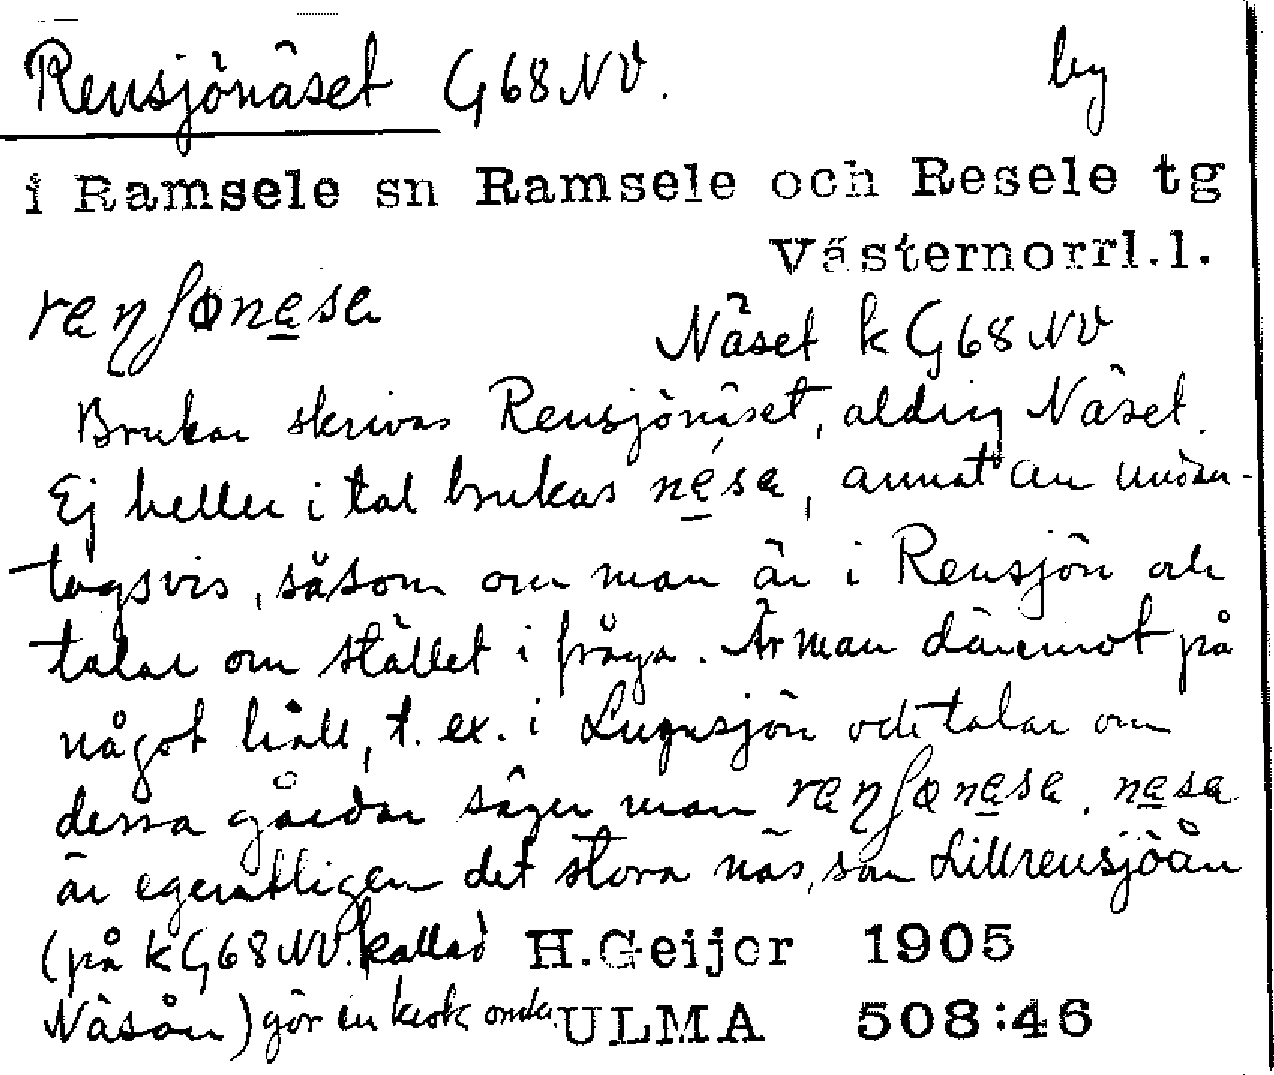 Rensjönäset G68NV. by
i Ramsele sn Ramsele och Resele tg
Västernorrl.l.
Näset k G68NV
Brukar skrivas Rensjönäset, aldrig Näset.
Ej heller i tal brukas, annat än undan-
tagsvis, såsom om man är i Rensjön och
talar om stället i fråga. Är man däremot på
något håll, t. ex. i Lugnsjön och talar om
dessa gårdar säger man
är egentligen det stora näs, som Lillrensjöån
(på k G68NV. kallad H.Geijer 1905
Näsån) gör en krok ULMA 508:46